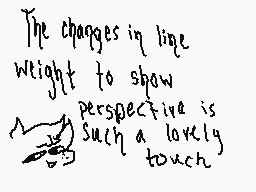 The changes in line
weight to show
perspective is
such a lovely
touch